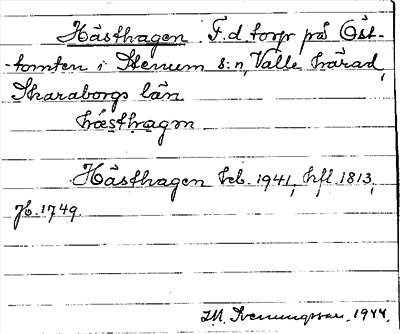 Hästhagen F.d. torp på Öst-
-tomten i Stenum s:n, Valle härad,
Skaraborgs län.
hæsthagɷn
Hästhagen hcb. 1941, hfl 1813,
Jb. 1749.
I.M. Svenungsson. 1944.